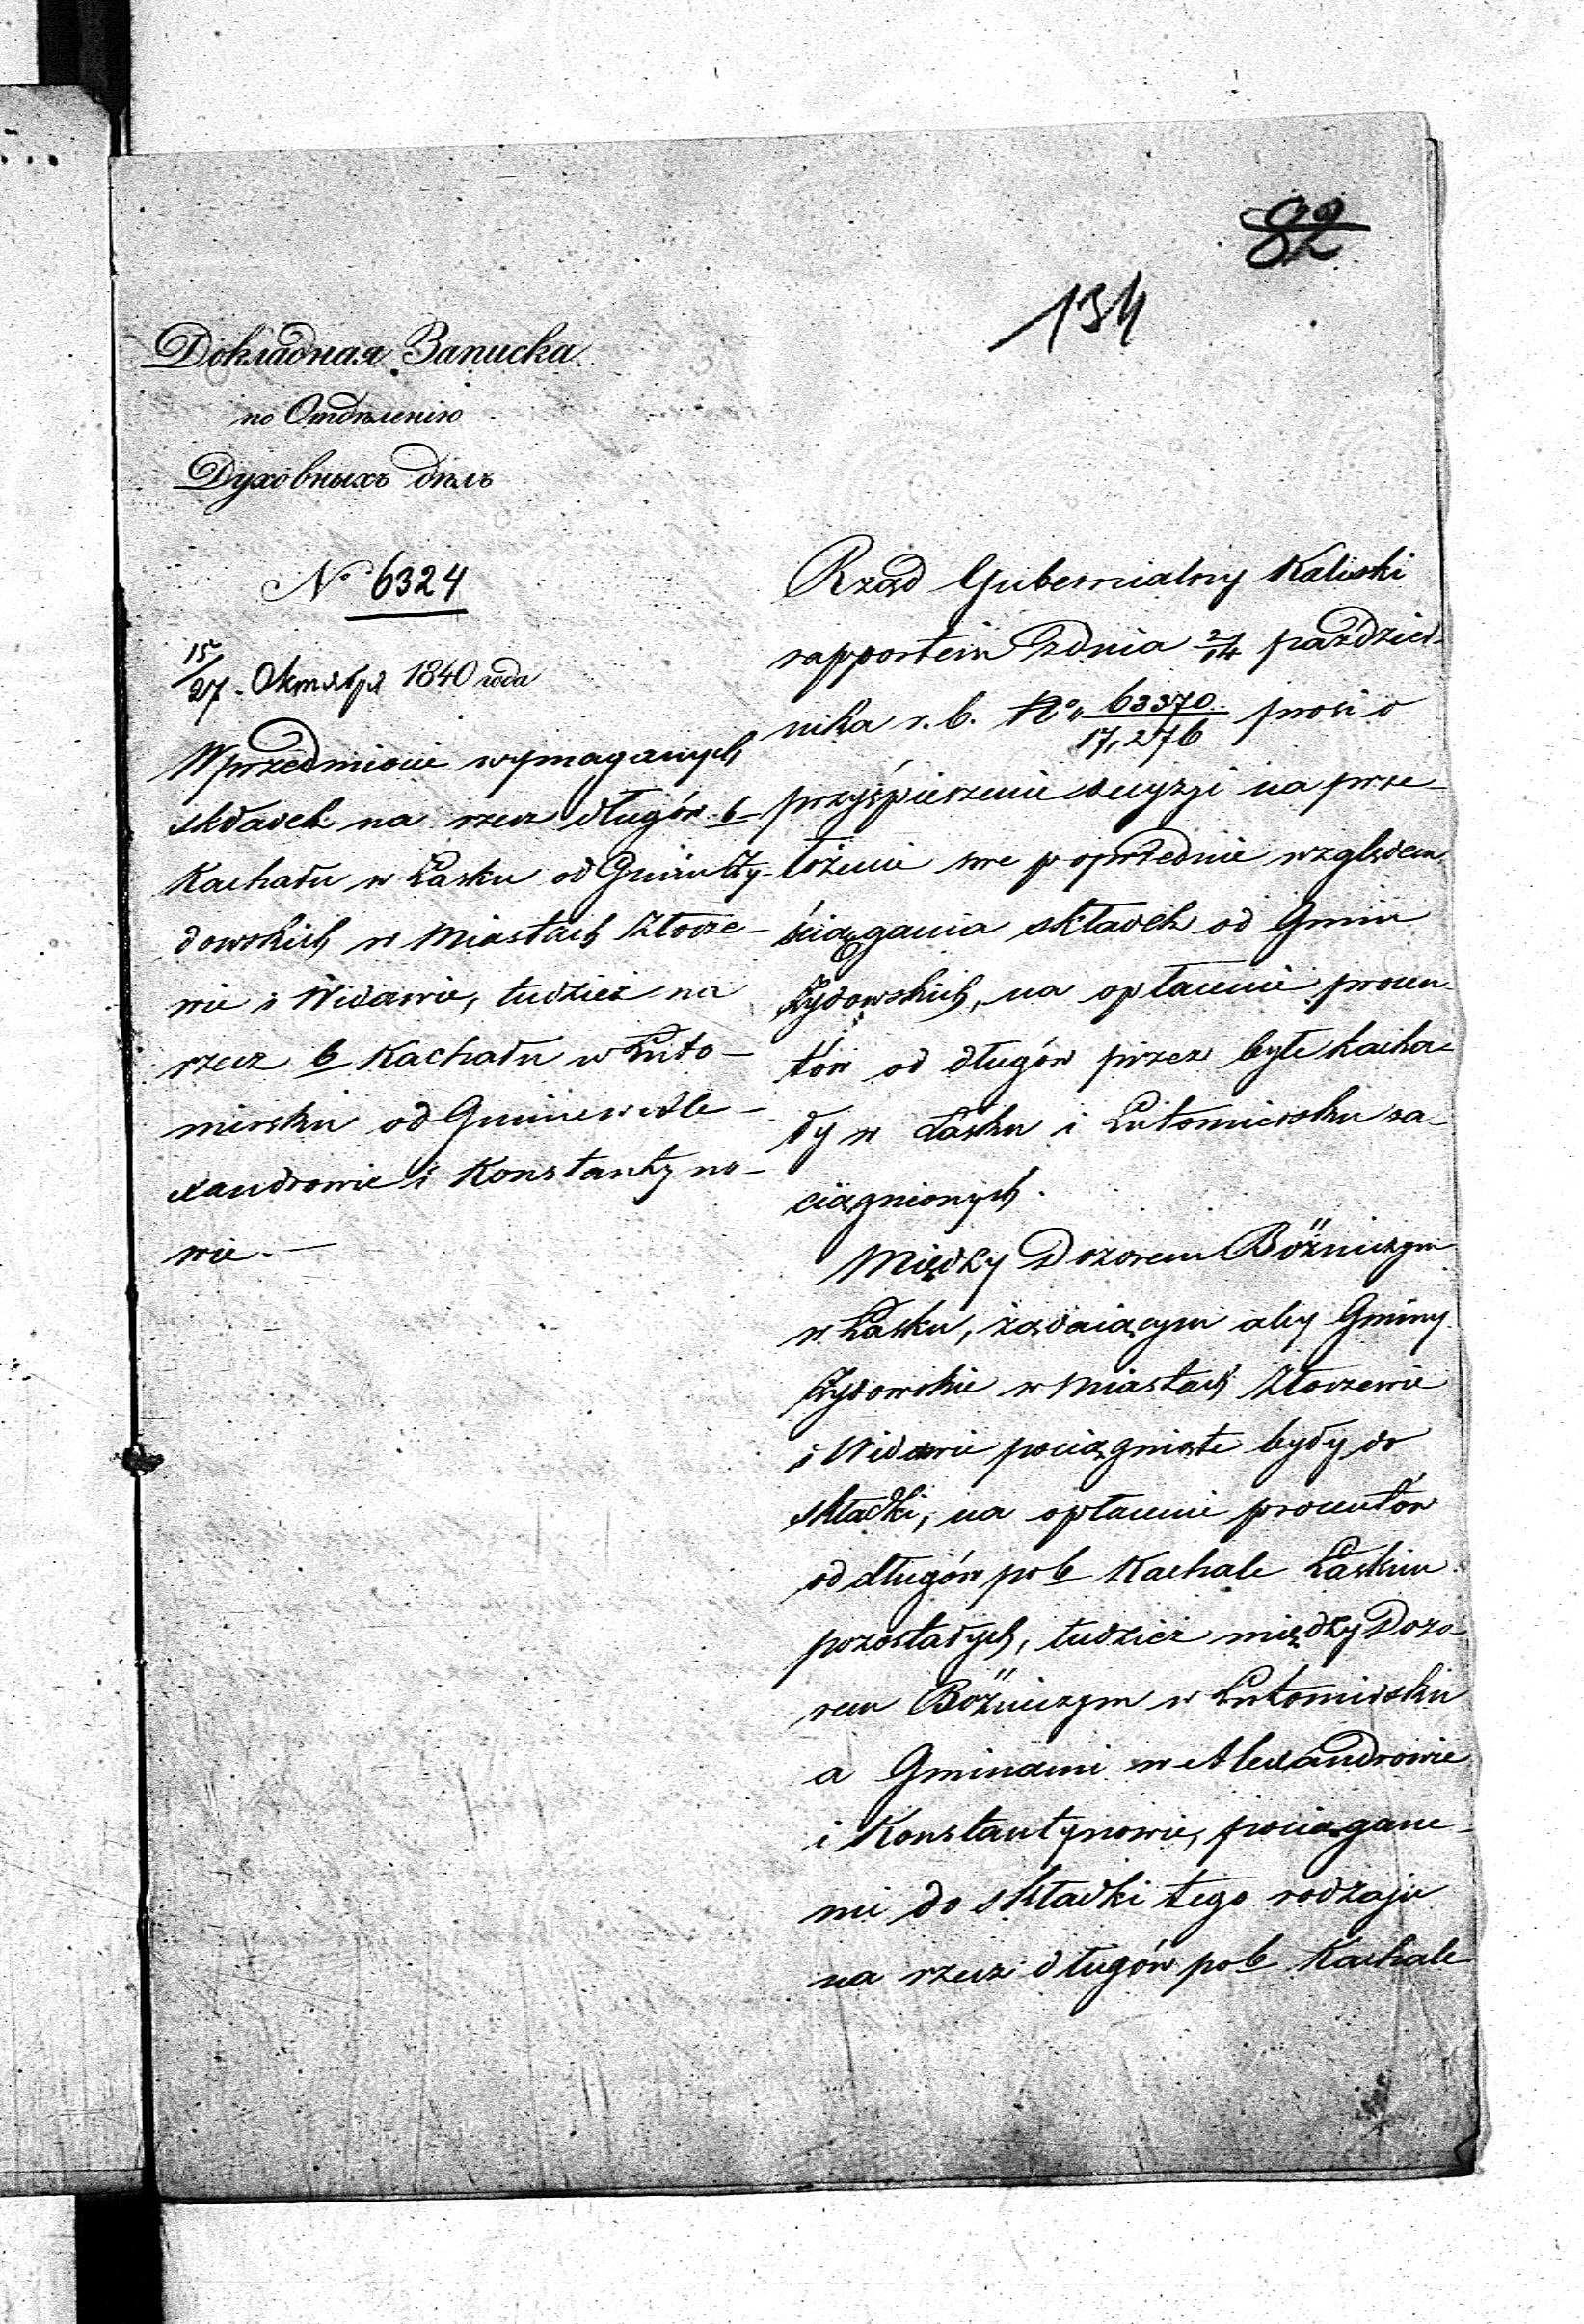 82
134
Докладная Записка
по Отдѣленію
Духовныхъ дѣлъ
№ 6324
15/27 Октября 1840 года
W przedmiocie wymaganych
składek na rzecz długów b
Kachału w Łasku od Gmin Ży-
dowskich w Miastach Złocze-
wie i Widawie, tudzież na
rzecz b Kachału w Luto-
miersku od Gmin w Ale-
xandrowie i Konstantyno-
wie. —
Rząd Gubernialny Kaliski
rapportem z dnia 2/14 paździer-
nika r. b. No 63370/17,276 prosi o
przyśpieszenie decyzyi na prze-
łożenie swe poprzednie względem
ściągania składek od Gmin
Żydowskich, na opłacenie procen-
tów od długów przez byłe kacha-
ły w Łasku i Lutomiersku za-
ciągnionych.
Między Dozorem Bóżniczym
w Łasku, żądaiącym aby Gminy
Żydowskie w Miastach Złoczewie
i Widawie pociągnięte były do
składki, na opłacenie procentów
od długów po b Kachale Łaskim
pozostałych, tudzież między Dozo-
rem Bóżniczym w Lutomiersku
a Gminami w Alexandrowie
i Konstantynowie, pociągane-
mi do składki tego rodzaju
na rzecz długów po b Kachale